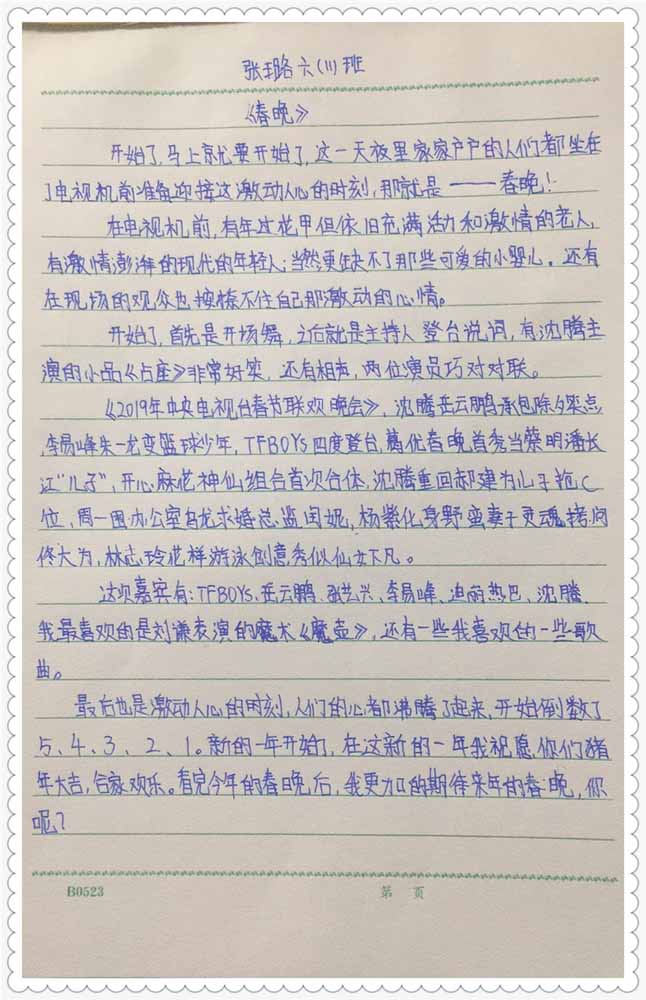 张璐六(1)班
《春晚》
开始了,马上就要开始了,这一天夜里家家户户的人们都坐在
了电视机前准备迎接这激动人心的时刻,那就是——春晚!
在电视机前,有年过花甲但依旧充满活力和激情的老人,
有激情澎湃的现代的年轻人;当然更缺不了那些可爱的小婴儿。还有
在现场的观众也按捺不住自己那激动的心情。
开始了,首先是开场舞,之后就是主持人登台说词,有沈腾主
演的小品《占座》非常好笑,还有相声,两位演员巧对对联。
《2019年中央电视台春节联欢晚会》,沈腾岳云鹏承包除夕笑点
,李易峰朱一龙变篮球少年,TFBOYS四度登台,葛优春晚首秀当蔡明潘长
江“儿子”,开心麻花神仙组合首次合体,沈腾重回郝建为儿子抢C
位,周一围办公室乌龙求婚总监闫妮,杨紫化身野蛮妻子灵魂拷问
佟大为,林志玲花样游泳创意秀似仙女下凡。
这次嘉宾有:TFBOYS、岳云鹏、张艺兴、李易峰、迪丽热巴、沈腾、
我最喜欢的是刘谦表演的魔术《魔壶》,还有一些我喜欢的一些歌
曲。
最后也是激动人心的时刻,人们的心都沸腾了起来,开始倒数了
5、4、3、2、1。新的一年开始了,在这新的一年我祝愿你们猪
年大吉,合家欢乐。看完今年的春晚后,我更加的期待来年的春晚,你
呢?
B0523 第 页